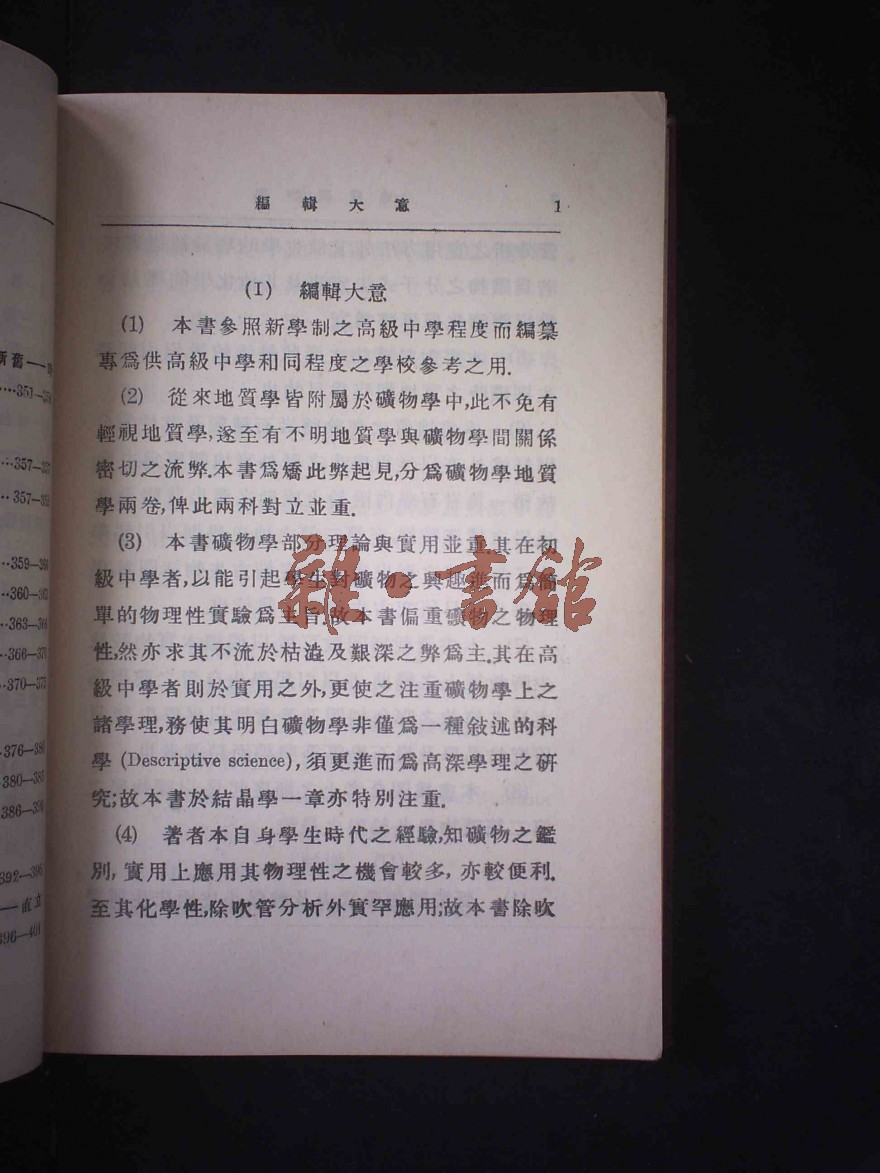 編輯大意 1
(I) 編輯大意
(1) 本書參照新學制之高級中學程度而編纂
專爲供高級中學和同程度之學校參考之用.
(2) 從來地質學皆附屬於礦物學中,此不免有
輕視地質學,遂至有不明地質學與礦物學間關係
密切之流弊.本書爲矯此弊起見,分爲礦物學地質
學兩卷,俾此兩科對立並重.
(3) 本書礦物學部分理論與實用並重.其在初
級中學者,以能引起學生對礦物之興趣進而爲簡
單的物理性實驗爲主旨.故本書偏重礦物之物理
性,然亦求其不流於枯澁及艱深之弊爲主.其在高
級中學者則於實用之外,更使之注重礦物學上之
諸學理,務使其明白礦物學非僅爲一種敍述的科
學 (Descriptive science), 須更進而爲高深學理之硏
究;故本書於結晶學一章亦特別注重.
(4) 著者本自身學生時代之經驗,知礦物之鑑
別, 實用上應用其物理性之機會較多, 亦較便利.
至其化學性,除吹管分析外實罕應用;故本書除吹
雜·書館
新舊——
····351—
··357—
··357—
··359—360
··360—363
··363—366
··366—370
··370—373
·376—380
·380—385
386—390
392—395
——直立
396—401